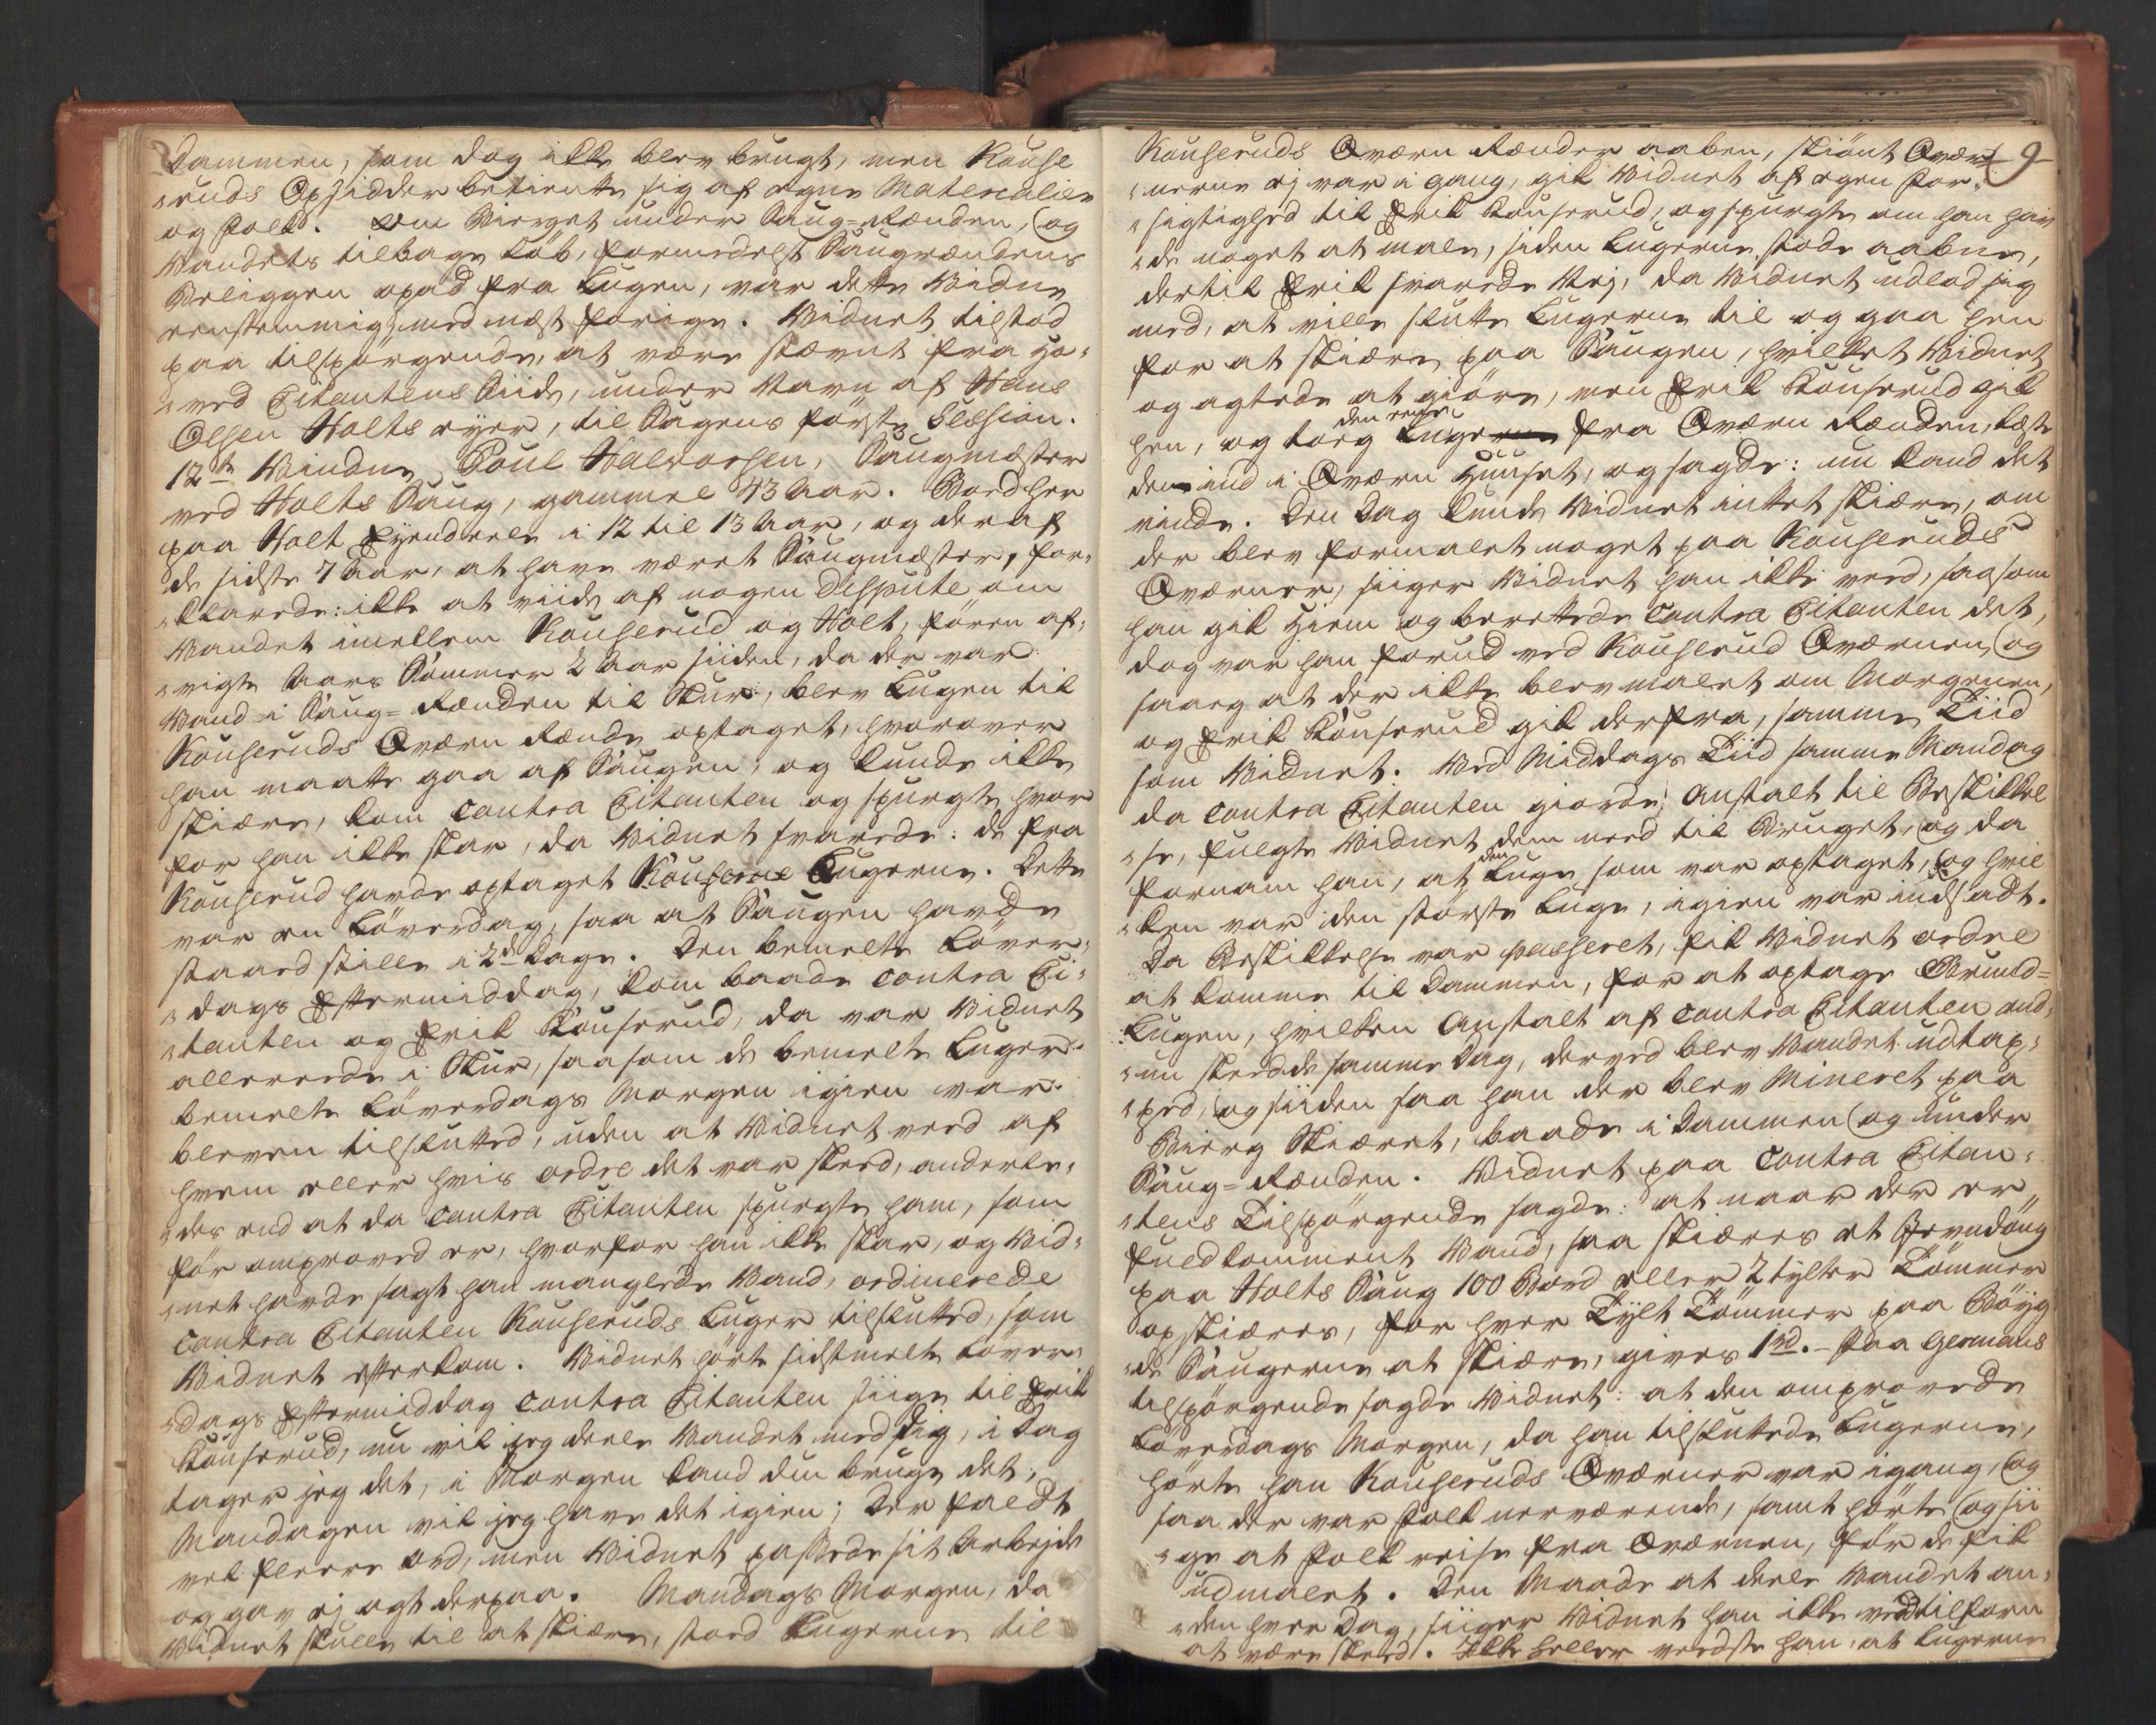 Dammen, som dog ikke blev brugt, men Kouse
ruds Opsidder betiente sig af egne Materialier
og Folk. Om Bierget under Saug-Renden, og
Vandets tilbage Løb, formedelst Saugrendens
Beliggen opad fra Lugen, var dette Vidne
eenstemmig med næst forige. Vidnet tilstod
paa tilspørgende, at være stævnt fra Ho-
ved Citantens Siide, under Navn af Hans
Olsen Holts eyer, til Sagens første Session.
12te Vindne Poul Halvorsen, Saugmester
ved Holts Saug, gammel 43 Aar. Boed her
paa Holt Eyendeele i 12 til 13 Aar, og deraf
de sidste 7 Aar, at have været Saugmester, for-
klarede: ikke at viide af nogen Dispute om
Vandet imellem Kouserud og Holt, føren af-
vigte Aars Sommer 2 Aar siiden, da der var
Vand i Saug-Renden til Skur, blev Lugen til
Kouseruds Qværn Rende optaget, hvorover
han maatte gaa af Saugen, og kunde ikke
skiære, kom Contra Citanten og spurgte hvor
for han ikke skar, da Vidnet svarede: de fra
Kouserud havde optaget Kouserud Lugerne. Dette
var en Løverdag, saa at Saugen havde
staaed stille i 2de Dage. Den bemelte Løver-
dags Eftermiddag, kom baade Contra Ci-
tanten og Erik Kouserud, da var Vidnet
allereede i Skur, saasom de bemelte Luger
bemelte Løverdags Morgen igien var
bleven tilslutted, uden at Vidnet veed af
hvem eller hvis ordre det var skeed, anderle-
des end at da Contra Citanten spurgte ham, som
før omproved er, hvorfor han ikke skar, og Vid-
net havde sagt han manglede Vand, ordinerede
Contra Citanten Kouseruds Luger tilslutted, som
Vidnet efterkom. Vidnet hørte sidstmelte Løver-
dags Eftermiddag Contra Citanten siige til Erik
Kouserud, nu vil jeg deele Vandet med dig, i Dag
tager jeg det, i Morgen kand du bruge det,
Mandagen vil jeg have det igien; Der faldt
vel fleere Ord, men Vidnet passede sit Arbejde
og gav ej agt derpaa. Mandags Morgen, da
Vidnet skulle til at skiære, stoed Lugerne til
9
Kouseruds Qværn Render aaben, skiønt Qvær-
nerne ej var i gang, gik Vidnet af egen For-
sigtighed til Erik Kouserud, og spurgte om han hav
de noget at male, siden Lugerne stode aabne,
dertil Erik svarede Nej, da Vidnet udlod sig
med, at ville slutte Lugerne til og gaa hen
for at skiære paa Saugen, hvilket Vidnet
og agtede at giøre, men Erik Kouserud gik
den eene
hen, og toeg Lugerne fra Qværn Renden, kaste
den ind i Qværn Huuset, og sagde: nu kand det
rinde. Den Dag kunde Vidnet intet skiære, om
der blev formalet noget paa Kouseruds
Qværner, siiger Vidnet han ikke veed, saasom
han gik hiem og berettede Contra Citanten det,
dog var han forud ved Kouserud Qværnen, og
saaeg at der ikke blev malet om Morgenen,
og Erik Kouserud gik derfra, samme Tiid
som Vidnet. Ved Middags Tiid samme Mandag
da Contra Citanten giorde Anstalt til Beskikkel
se, fulgte Vidnet dem need til Bruget, og da
den
fornam han, at Luge som var optaget, og hvil
ken var den største Luge, igien var indsadt.
Da Beskikkelse var passeret, fik Vidnet ordre
at komme til Dammen, for at optage Bund-
Lugen, hvilken Anstalt af Contra Citanten end-
nu skeede samme Dag, derved blev Vandet udtap-
ped, og siiden saa han der blev Mineret paa
Bierg Skiæret, baade i Dammen og under
Saug-Renden. Vidnet paa Contra Citan-
tens Tilspørgende sagde: at naar der er
fuldkomment Vand, saa skiæres et Jevndøng
paa Holts Saug 100 Bord eller 2 tylter Tømmer
opskiæres, for hver Tylt Tømmer paa Bøyg
de Saugerne at skiære, gives 1 rd. - Paa Germans
tilspørgende sagde Vidnet: at den omprovede
Løverdags Morgen, da han tilsluttede Lugerne,
hørte han Kouseruds Qværner var igang, og
saa der var Folk nerværende, samt hørte og sii
ge at Folk reise fra Qværnen, før de fik
udmalet. Den Maade at deele Vandet an-
den hver Dag, siiger Vidnet han ikke veed tilforn
at være skeed. Ikke heller veedste han, at Lugerne